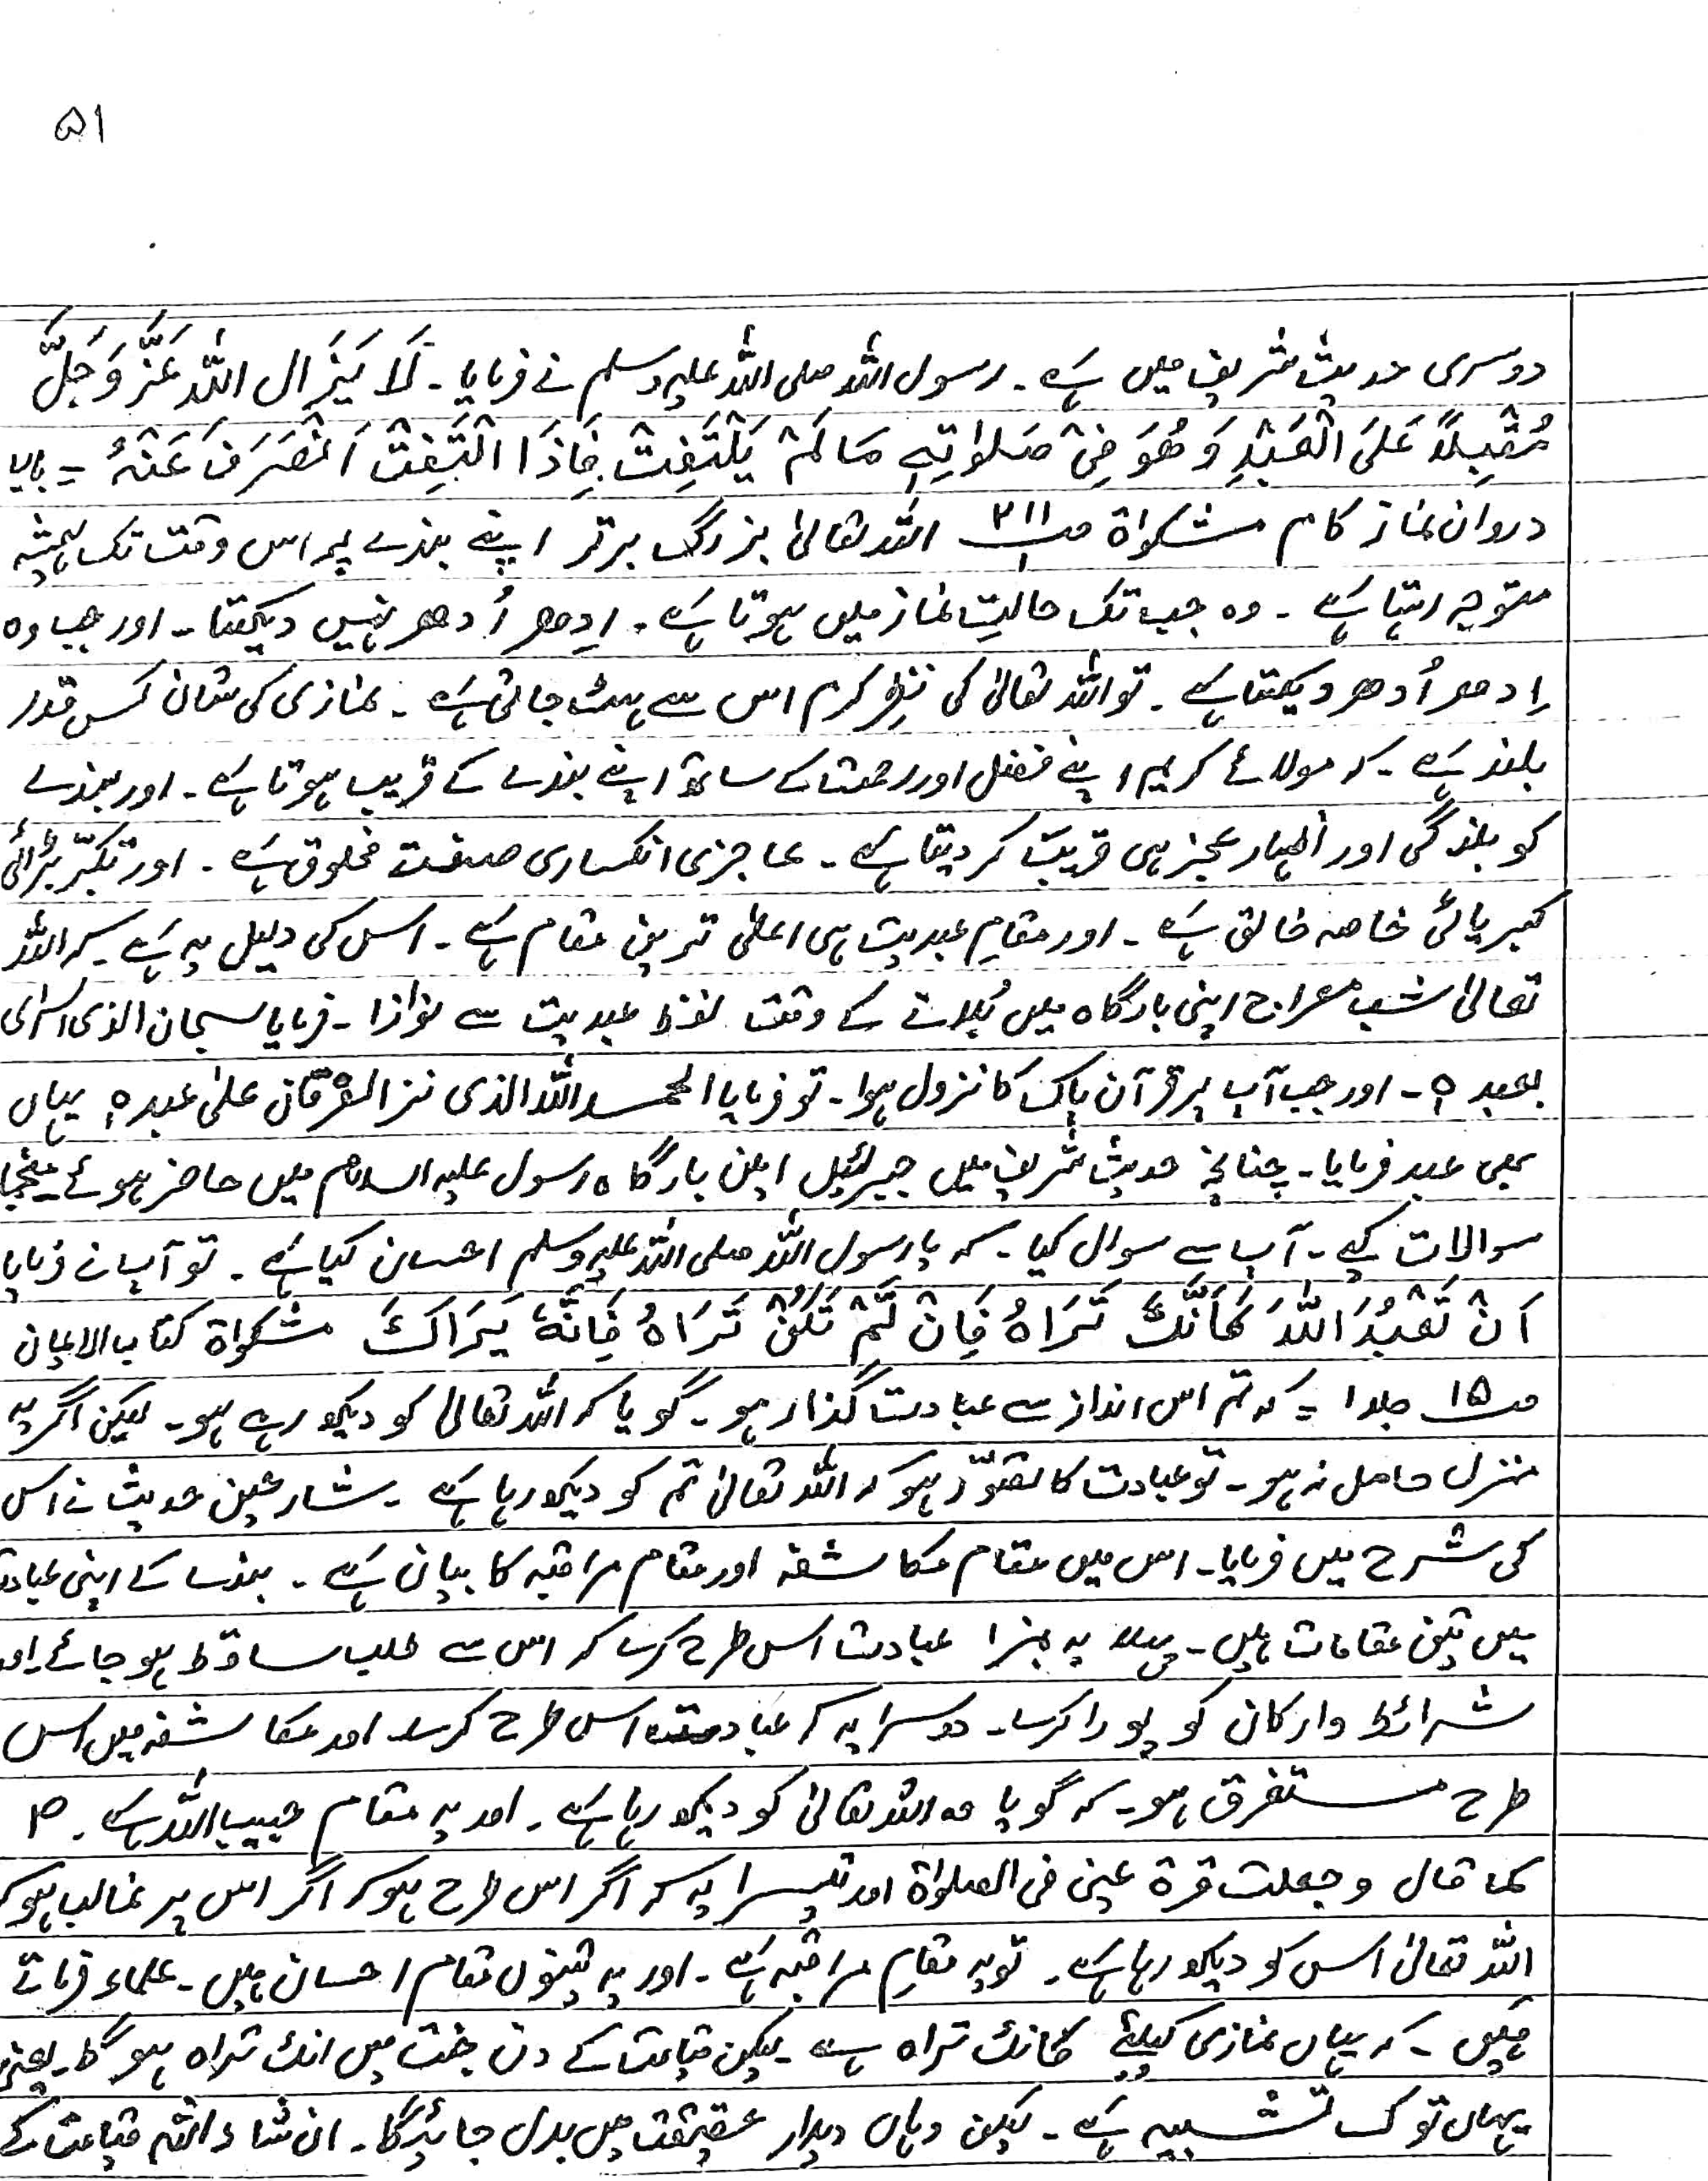 ۵۱
دوسری حدیث شریف میں ہے ۔ رسول اللہ صلی اللہ علیہ وسلم نے فرمایا ۔ لَا یَزَال اللہ عَزَّ وَ جَلَّ
مُقْبِلاً عَلَی الْعَبْدِ وَ ھُوَ فِیْ صَلٰوتِہٖ مَا لَمْ یَلْتَفِتْ فَاِذَا الْتَفَتْ اَنْصَرَفَ عَنْہُ = باب
دروان نماز کام مشکواۃ صـ ۲۱۱ اللہ تعالیٰ بزرگ برتر اپنے بندے پر اس وقت تک ہمیشہ
متوجہ رہتا ہے ۔ وہ جب تک حالتِ نماز میں ہوتا ہے ۔ اِدھر اُدھر نہیں دیکھتا ۔ اور جب وہ
اِدھر اُدھر دیکھتا ہے ۔ تو اللہ تعالیٰ کی نظرِ کرم اس سے ہٹ جاتی ہے ۔ نمازی کی شان کس قدر
بلند ہے ۔ کہ مولائے کریم اپنے فضل اور رحمت کے ساتھ اپنے بندے کے قریب ہوتا ہے ۔ اور بندے
کو بندگی اور اظہار عجز ہی قریب کر دیتا ہے ۔ عاجزی انکساری صفت مخلوق ہے ۔ اور تکبّر بڑائی
کبریائی خاصہ خالق ہے ۔ اور مقامِ عبدیت ہی اعلیٰ ترین مقام ہے ۔ اس کی دلیل یہ ہے ۔ کہ اللہ
تعالیٰ شب معراج اپنی بارگاہ میں بُلانے کے وقت لفظ عبدیت سے نوازا ۔ فرمایا سبحان الذی اسریٰ
بعبدہٖ ۔ اور جب آپ پر قرآن پاک کا نزول ہوا ۔ تو فرمایا الحمد اللہ الذی نزالفرقان علیٰ عبدہٖ یہاں
بھی عبد فرمایا ۔ چنانچہ حدیث شریف میں جبرئیل امین بارگاہ رسول علیہ السلام میں حاضر ہوئے
سوالات کیے ۔ آپ سے سوال کیا ۔ کہ یا رسول اللہ صلی اللہ علیہ وسلم احسان کیا ہے ۔ تو آپ نے فرمایا
اَنْ تَعْبُدَ اللہَ کَاَنَّکَ تَرَاہُ فَاِنْ لَّمْ تَکُنْ تَرَاہُ فَاِنَّہٗ یَرَاکَ مشکواۃ کتاب الایمان
صـ ۱۵ جلد ۱ = کہ تم اس انداز سے عبادت گذار ہو ۔ گویا کہ اللہ تعالیٰ کو دیکھ رہے ہو ۔ لیکن اگر یہ
منزل حاصل نہ ہو ۔ تو عبادت کا تصوّر ہو کہ اللہ تعالیٰ تم کو دیکھ رہا ہے ۔ شارحین حدیث نے اس
کی شرح میں فرمایا ۔ اس میں مقام مکاشفہ اور مقام مراقبہ کا بیان ہے ۔ بندے کے اپنی عبادت
میں تین مقامات ہیں ۔ پہلا یہ عبادت اس طرح کرے کہ اس سے طلب ساقط ہو جائے ۔ اور
شرائط و ارکان کو پورا کرے ۔ دوسرا یہ کہ عبادت اس طرح کرے اور مکاشفہ میں اس
طرح مستغرق ہو ۔ کہ گویا وہ اللہ تعالیٰ کو دیکھ رہا ہے ۔ اور یہ مقام حبیب اللہ ہے ۔
کما قال و جعلت قرۃ عینی فی الصلواۃ اور تیسرا یہ کہ اگر اس طرح ہو کہ اگر اس پر غالب ہو کہ
اللہ تعالیٰ اس کو دیکھ رہا ہے ۔ تو یہ مقامِ مراقبہ ہے ۔ اور یہ تینوں مقام احسان ہیں ۔ علماء فرماتے
ہیں ۔ کہ یہاں نمازی کیلئے کانک تراہ ہے ۔ لیکن قیامت کے دن جنت میں انک تراہ ہو گا ۔ یعنی
یہاں تو ک تشبیہ ہے ۔ لیکن وہاں دیدار حقیقت میں بدل جائیگا ۔ ان شاء اللہ قیامت کے